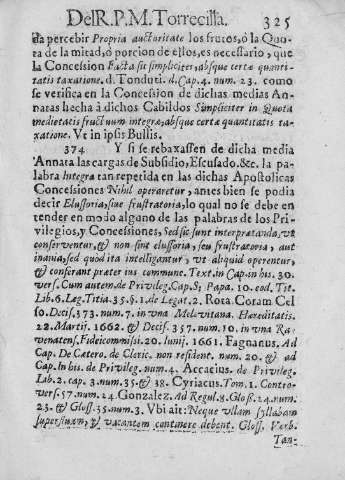 Del R. P. M. Torrecilla. 325
da percebir Propria auctoritate los frutos, ò la Quo-
ta de la mitad, ò porcion de ellos, es necessario, que
la Concession Facta sit simpliciter, absque certæ quanti-
tatis taxatione. d. Tonduti. d. Cap. 4. num. 23. como
se verifica en la Concession de dichas medias An-
natas hecha à dichos Cabildos Simpliciter in Quota
medietatis fructuum integræ, absque certæ quantitatis ta-
xatione. Ve in ipsis Bullis.
374 Y si se rebaxassen de dicha media
Annata las cargas de Subsidio, Escusado. &c. la pa-
labra Integra tan repetida en las dichas Apostolicas
Concessiones Nihil operaretur, antes bien se podia
decir Elussoria, sive frustratoria, lo qual no se debe en
tender en modo alguno de las palabras de los Pri-
vilegios, y Concessiones, Sed sic sunt interprætanda, vt
conserventur, & non sint elussoria, seu frustratoria, aut
inania, sed quod ita intelligantur, vt aliquid operentur,
& conferant præter ius commune. Text. in Cap. in his. 30.
vers. Cum autem. de Privileg. Cap. S; Papa. 10. eod. Tit.
Lib. 6. Leg. Titia. 35. §. 1. de Legat. 2. Rota. Coram Cel
so. Decis. 373. num. 7. in vna Melevitana. Hæreditatis.
22. Martij. 1662. & Decis. 357. num. 10. in vna Ra-
venatens. Fideicommissi. 20. Iunij. 1661. Fagnanus. Ad
Cap. De Cætero. de Cleric. non resident. num. 20. & ad
Cap. In his. de Privileg. num. 4. Accacius. de Privileg.
Lib. 2. cap. 3. num. 35. & 38. Cyriacus. Tom. 1. Contro-
vers. 57. num. 24. Gonzalez. Ad Regul. 8. Gloss. 24. num.
23. & Gloss. 35. num. 3. Vbi ait: Neque vllam syllabam
superfluam, & vacantem continere debent. Gloss. Verb.
Tan-